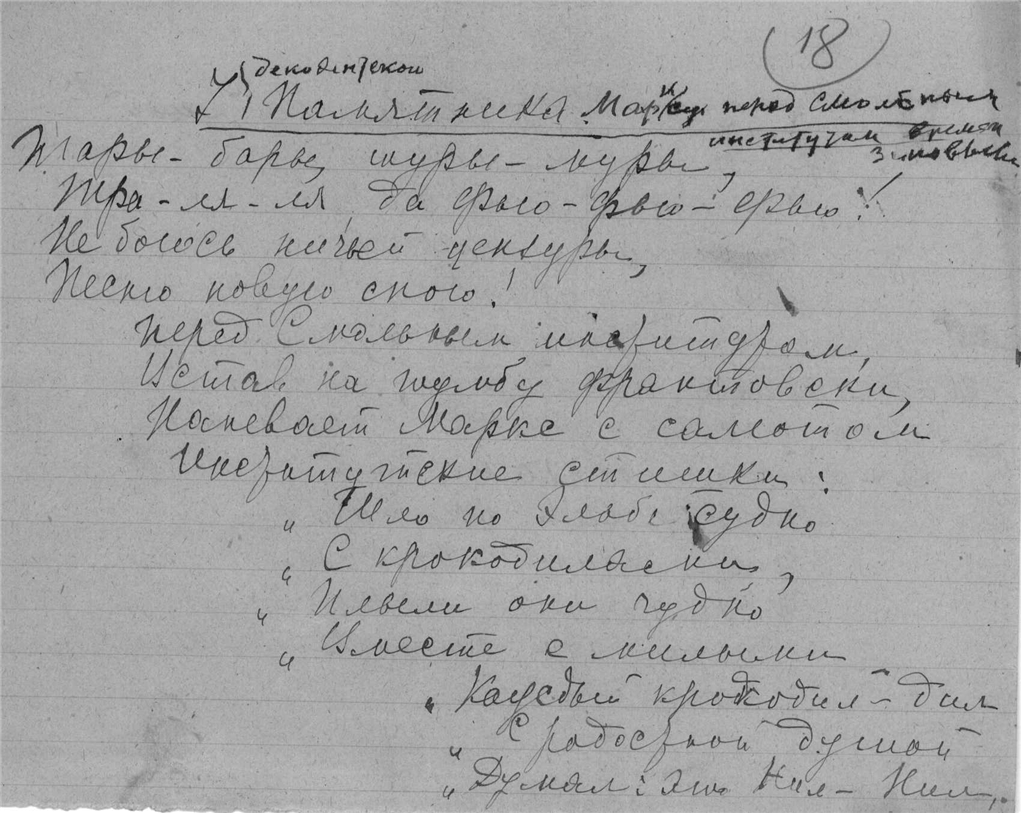 18
декадентской
У Памятника Марксу перед Смольным
институтом времен
Зиновьева
Тары-бары, шуры-муры,
Тра-ля-ля да фью-фью-фью!
Не боюсь ничьей цензуры,
Песню новую спою!
Перед Смольным институтом,
Встав на тумбу франтовски,
Напевает Маркс с салютом
Институтские стишки:
„Шло по Эльбе судно
„С крокодилами,
„Плыли они чудно
„Вместе с милыми
„Каждый крокодил-дил
„С радостной душой
„Думал: это Нил-Нил,